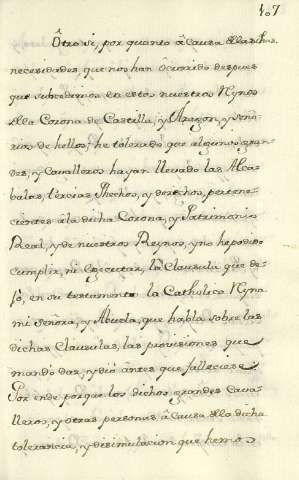 107
Otrosi, por quanto â causa dlas dhas.
necesidades, que nos han ôcurrido despues
que subcedimos en estos nuestros Rynos
dla Corona de Castilla, y Aragon, y seño-
rios de hellos; he tolerado que algunos gran-
des, y Cavalleros hayan llevado las Alca-
balas, tercias Phechos, y derechos, pertene-
cientes âla dicha Corona, y Patrimonio
Real, y de nuestros Reynos, y no he podido
cumplir, ni Egecutar, la Clausula que de-
jó, en su testamento la Catholica Ryna
mi señora, y Abuela, que habla sobre las
dichas Clausulas, las provisiones que
mando dar, y dio ântes que falleciese
Por ende porque los dichos grandes Cava-
lleros, y otras personas, â causa dla dicha
tolerancia, y disimulacion que hemos